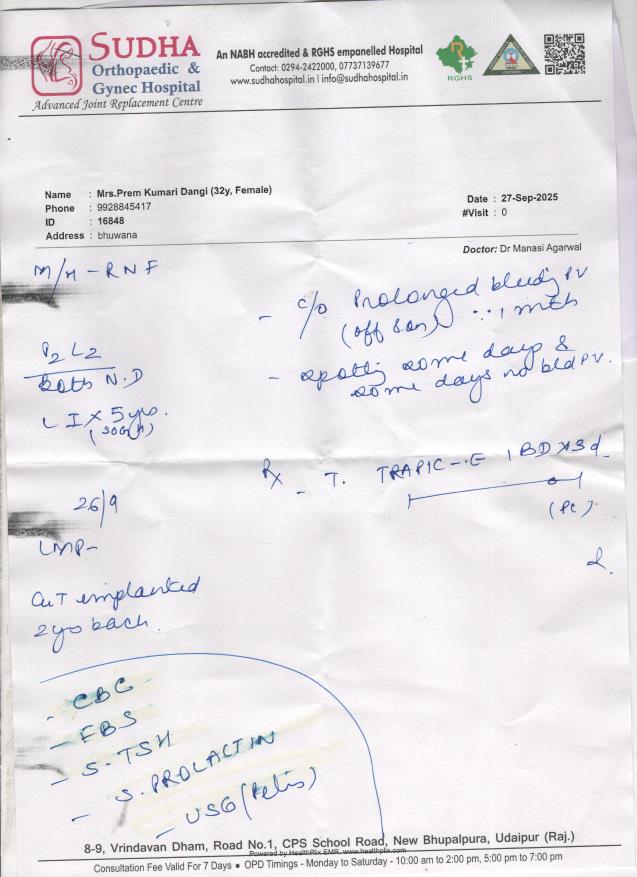 SUDHA
Orthopaedic &
Gynec Hospital
Advanced Joint Replacement Centre
An NABH accredited & RGHS empanelled Hospital
Contact: 0294-2422000, 07737139677
www.sudhahospital.in | info@sudhahospital.in
RGHS
Name : Mrs.Prem Kumari Dangi (32y, Female)
Phone : 9928845417
ID : 16848
Address : bhuwana
Date : 27-Sep-2025
#Visit : 0
Doctor: Dr Manasi Agarwal
M/H - RNF
P2 L2
both N.D
L I x 5 yrs.
26/9
LMP-
CuT implanted
2yo back.
- c/o Prolonged bleedy PV
(off & on) 1 mth
- spotty some days &
some days no bld PV.
Rx - T. TRAPIC-E 1 BD x3d
(PC)
- CBC
- FBS
- S.TSH
- S.PROLACTIN
- USG (Pelvis)
8-9, Vrindavan Dham, Road No.1, CPS School Road, New Bhupalpura, Udaipur (Raj.)
Powered by HealthPlix EMR. www.healthplix.com
Consultation Fee Valid For 7 Days ● OPD Timings - Monday to Saturday - 10:00 am to 2:00 pm, 5:00 pm to 7:00 pm